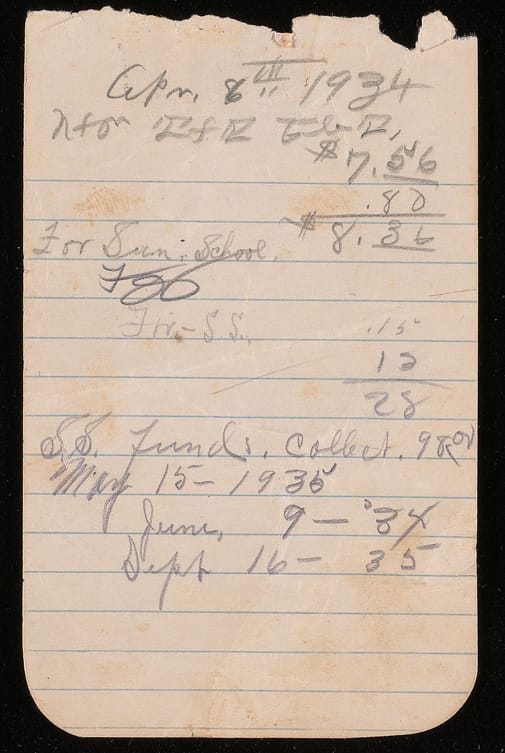 Apr. 8th 1934
$7.56
.80
$8.36
For Sun. School.
For - S.S.
.15
13
28
S.S. Funds. Collect. 98
May 15 - 1935
June, 9 - 34
Sept 16 - 35